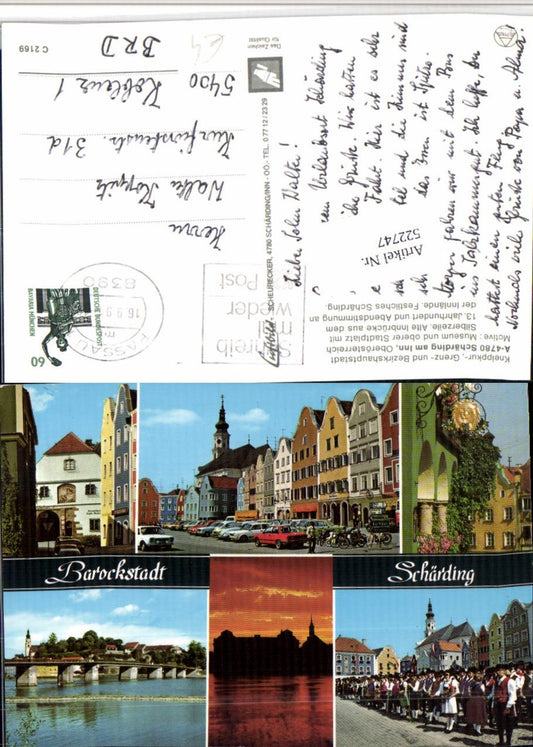 Kneippkur-, Grenz- und Bezirkshauptstadt
A-4780 Schärding am Inn, Oberösterreich
Motive: Museum und oberer Stadtplatz mit
Silberzeile. Alte Innbrücke aus dem
13. Jahrhundert und Abendstimmung an
der Innlände. Festliches Schärding.
Artikel Nr.
522747
Liebe Sohn Walter!
Urlaubsort Schärding
Grüße. Wir hatten
Fahrt. Hier ist es sehr
und die Zimmer sind
das Essen ist Spitze.
Morgen fahren wir mit dem Bus
ins Salzkammergut. Ich hoffe, Du
hattest einen guten Flug.
Nochmals viele Grüße von
SCHEURECKER, 4780 SCHÄRDING/INN - OÖ. - TEL. 0 77 12 / 23 29
Das Zeichen
für Qualität
Schreib
mal
wieder
Post
8390
PASSAU
DEUTSCHE BUNDESPOST
BAVARIA MÜNCHEN
60
Herrn
Walter
Kurfürstenstr. 31d
5400 Koblenz 1
BRD
C 2169
Barockstadt
Schärding